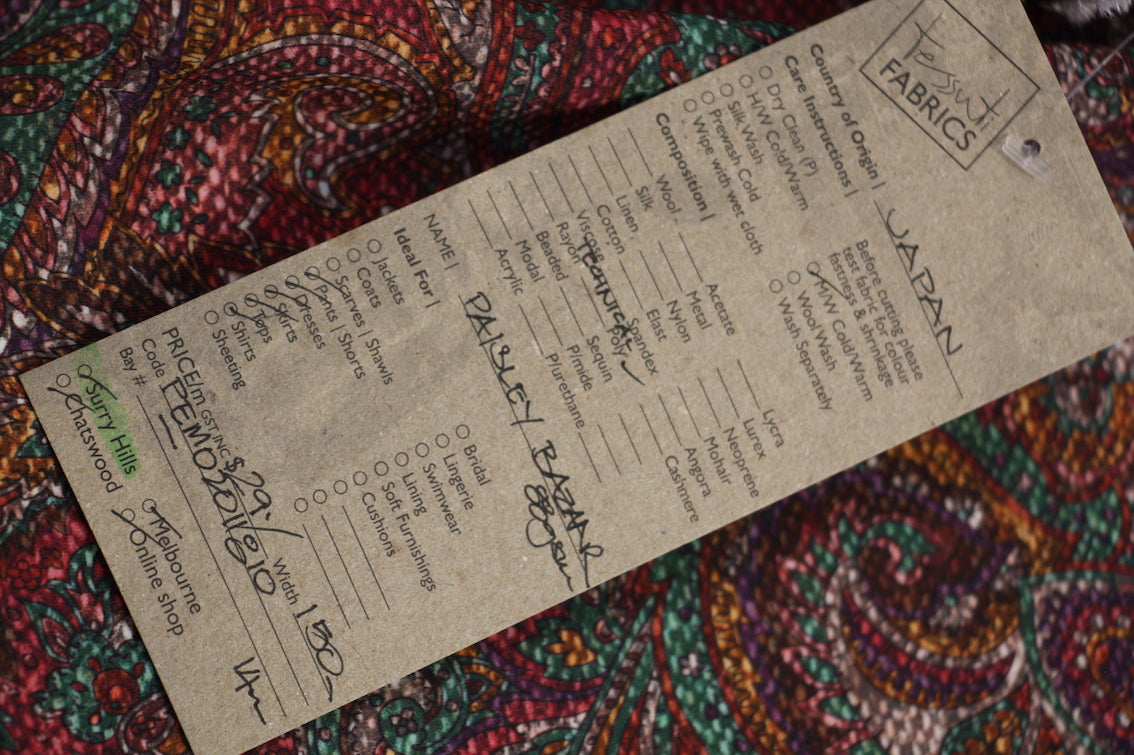 Tessuti
FABRICS
Country of Origin | JAPAN
Care Instructions |
Dry Clean (P)
H/W Cold/Warm
Silk Wash
Prewash Cold
Wipe with wet cloth
Before cutting please
test fabric for colour
fastness & shrinkage
M/W Cold/Warm
Wool Wash
Wash Separately
Composition |
Wool
Silk
Linen
Cotton
Viscose
Rayon
Beaded
Modal
Acrylic
Acetate
Metal
Nylon
Elast
Spandex
TECHNICAL Poly ✓
Sequin
P/mide
P/urethane
Lycra
Lurex
Neoprene
Mohair
Angora
Cashmere
NAME | PAISLEY BAZAAR
Ideal For |
Jackets
Coats
Scarves | Shawls
Pants | Shorts
Dresses
Skirts
Tops
Shirts
Sheeting
Bridal
Lingerie
Swimwear
Lining
Soft Furnishings
Cushions
PRICE/m GST INC $29.- Width 150
Code
Bay #
Surry Hills
Chatswood
Melbourne
Online shop